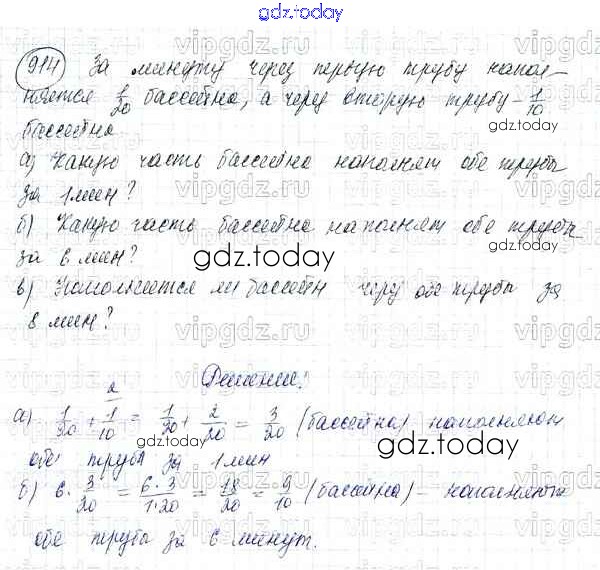 gdz.today
914 За минуту через первую трубу напол-
няется 1/20 бассейна, а через вторую трубу – 1/10
бассейна
gdz.today
а) Какую часть бассейна наполнят обе трубы
за 1 мин?
б) Какую часть бассейна наполнят обе трубы
за 6 мин?
gdz.today
в) Наполняется ли бассейн через обе трубы за
8 мин?
Решение:
а) 1/20 + 1/10 (2) = 1/20 + 2/20 = 3/20 (бассейна) наполняют
обе трубы за 1 мин
gdz.today
б) 6 · 3/20 = 6·3/1·20 = 18/20 = 9/10 (бассейна) – наполняют
обе трубы за 6 минут.
gdz.today
vipgdz.ru